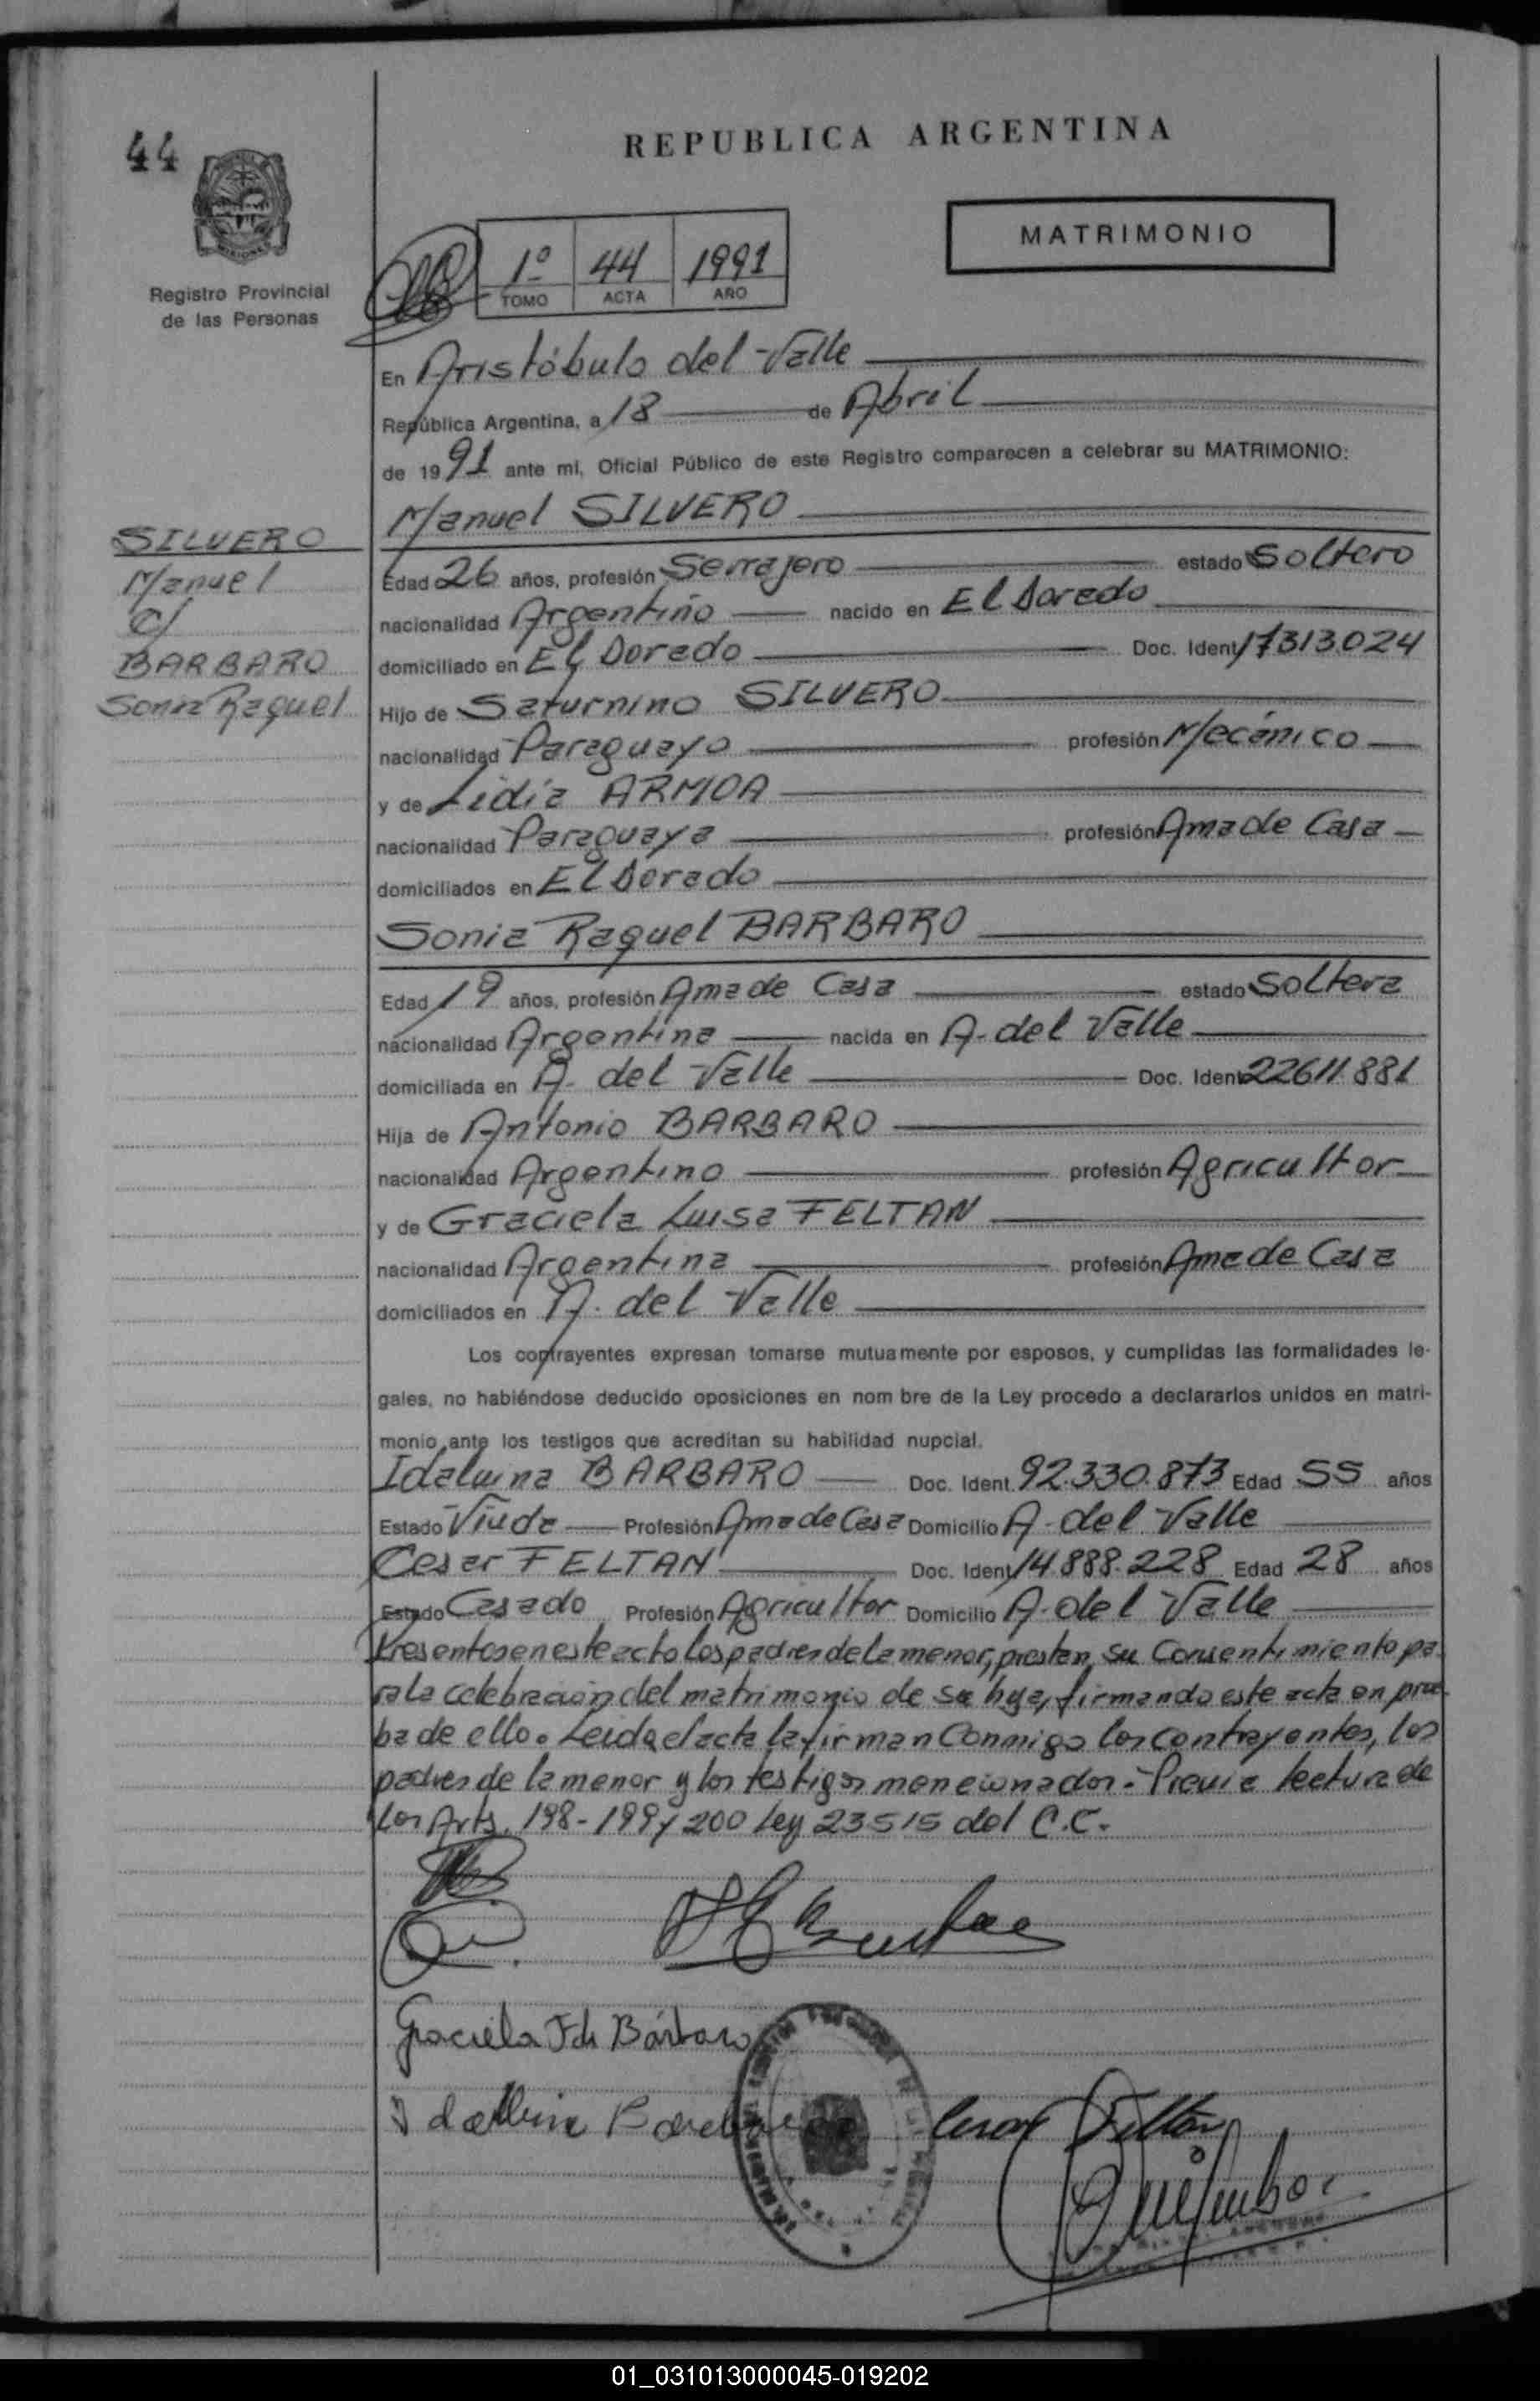 44
REPUBLICA ARGENTINA
MATRIMONIO
1º 44 1991
TOMO ACTA AÑO
Registro Provincial
de las Personas
En Aristóbulo del Valle
República Argentina, a 18 de Abril
de 1991 ante mí, Oficial Público de este Registro comparecen a celebrar su MATRIMONIO:
Manuel SILVERO
SILVERO
Manuel
C/
BARBARO
Sonia Raquel
Edad 26 años, profesión Serrajero estado Soltero
nacionalidad Argentino nacido en El Dorado
domiciliado en El Dorado Doc. Ident 17313.024
Hijo de Saturnino SILVERO
nacionalidad Paraguayo profesión Mecánico
y de Lidia ARMOA
nacionalidad Paraguaya profesión Ama de Casa
domiciliados en El Dorado
Sonia Raquel BARBARO
Edad 19 años, profesión Ama de Casa estado Soltera
nacionalidad Argentina nacida en A. del Valle
domiciliada en A. del Valle Doc. Ident 22611.881
Hija de Antonio BARBARO
nacionalidad Argentino profesión Agricultor
y de Graciela Luisa FELTAN
nacionalidad Argentina profesión Ama de Casa
domiciliados en A. del Valle
Los contrayentes expresan tomarse mutuamente por esposos, y cumplidas las formalidades le-
gales, no habiéndose deducido oposiciones en nom bre de la Ley procedo a declararlos unidos en matri-
monio ante los testigos que acreditan su habilidad nupcial.
Idaluina BARBARO Doc. Ident. 92.330.873 Edad 55 años
Estado Viuda Profesión Ama de Casa Domicilio A. del Valle
Cesar FELTAN Doc. Ident 14.888.228 Edad 28 años
Estado Casado Profesión Agricultor Domicilio A. del Valle
Presentes en este acto los padres de la menor, prestan su Consentimiento pa
ra la celebración del matrimonio de su hija, firmando este acta en prue
ba de ello. Leida el acta la firman Conmigo los contrayentes, los
padres de la menor y los testigos mencionados.- Previa lectura de
los Arts. 198-199 y 200 Ley 23515 del C.C.
Graciela F de Bárbaro
Cesar Feltan
01_031013000045-019202